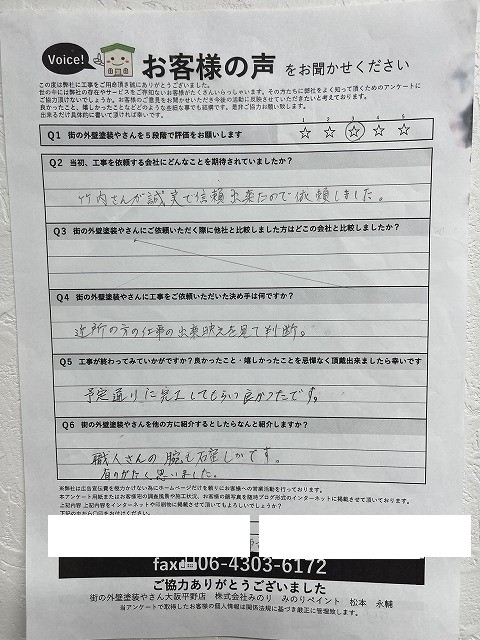 Voice!
お客様の声 をお聞かせください
この度は弊社に工事をご用命頂き誠にありがとうございました。
世の中には弊社の存在やサービスをご存知ないお客様がたくさんいらっしゃいます。その方たちに弊社をよく知って頂くためのアンケートに
ご協力頂けないでしょうか。お客様のご意見をお聞かせいただき今後の活動に反映させていただきたいと考えております。
良かったこと、嬉しかったことなどどのような些細な事でも結構です。是非ご協力お願い致します。
出来るだけ具体的に書いて頂ければ幸いです。
Q1 街の外壁塗装やさんを5段階で評価をお願いします
1 2 3 4 5
☆ ☆ ☆ ☆ ☆
Q2 当初、工事を依頼する会社にどんなことを期待されていましたか？
竹内さんが誠実で信頼出来たので依頼しました。
Q3 街の外壁塗装やさんにご依頼いただく際に他社と比較しました方はどこの会社と比較しましたか？
Q4 街の外壁塗装やさんに工事をご依頼いただいた決め手は何ですか？
近所の方の仕事の出来映えを見て判断。
Q5 工事が終わってみていかがですか？良かったこと・嬉しかったことを忌憚なく頂戴出来ましたら幸いです
予定通りに完工してもらって良かったです。
Q6 街の外壁塗装やさんを他の方に紹介するとしたらなんと紹介しますか？
職人さんの腕も確かです。
ありがたく思いました。
※弊社は広告宣伝費を極力かけない為にホームページだけを頼りにお客様への営業活動を行っております。
本アンケート用紙またはお客様宅の調査風景や施工状況、お客様の顔写真を随時ブログ形式のインターネットに掲載させて頂いております。
上記内容 上記内容をインターネットや印刷物に掲載させて頂いてもよろしいでしょうか？
fax 06-4303-6172
ご協力ありがとうございました
街の外壁塗装やさん大阪平野店 株式会社みのり みのりペイント 松本 永輔
当アンケートで取得したお客様の個人情報は関係法規に基づき厳正に管理致します。